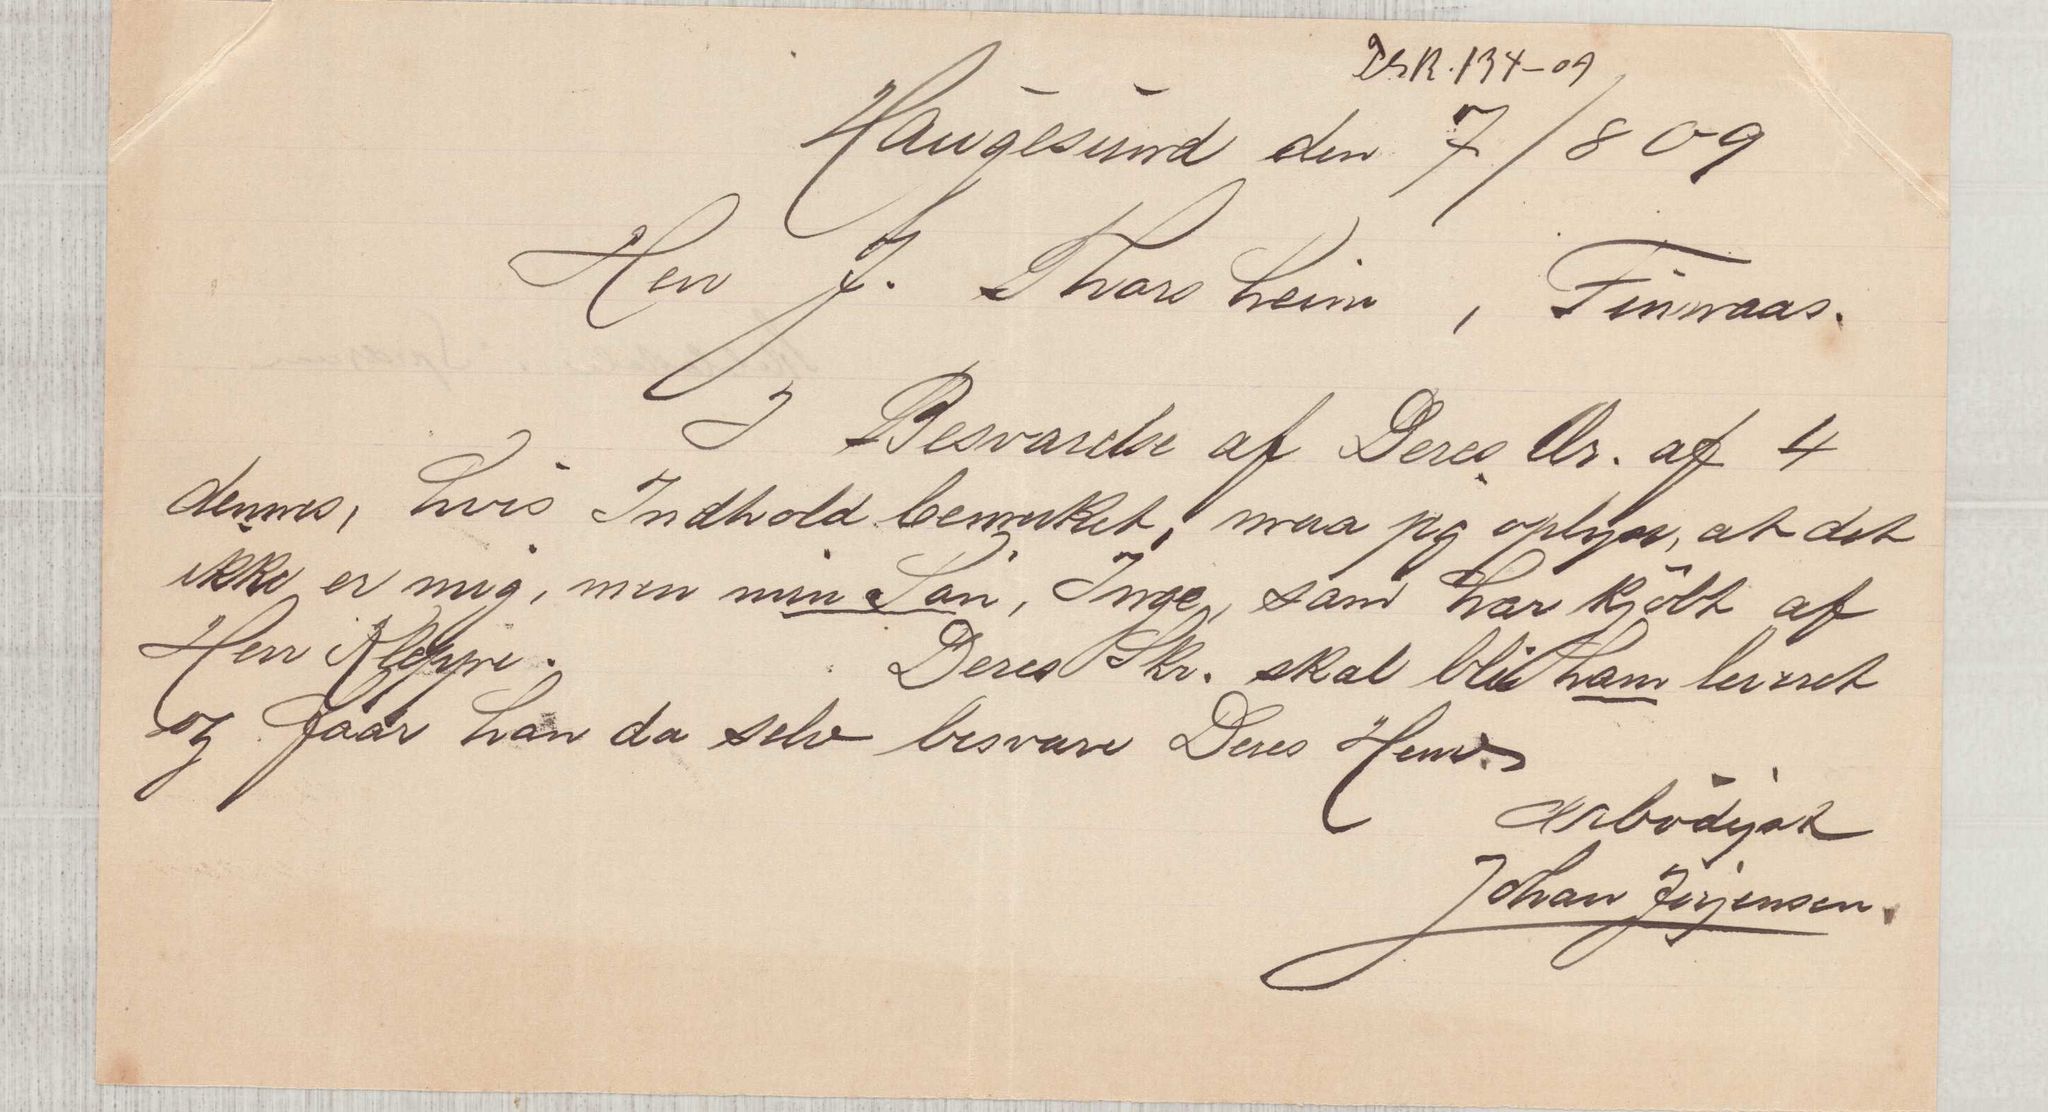 134-09
Haugesund den 7/8 09
Herr J. Thorsheim, Finnaas.
I Besvarelse af Deres Ær. af 4
dennes, hvis Indhold bemerket, maa jeg oplyse, at det
ikke er mig, men min Søn, Inge, som har kjöbt af
Herr Kleppe. Deres Skr. skal bli ham leveret
og faar han da selv besvare Deres Henv.
Ærbödigst
Johan Jørgensen.